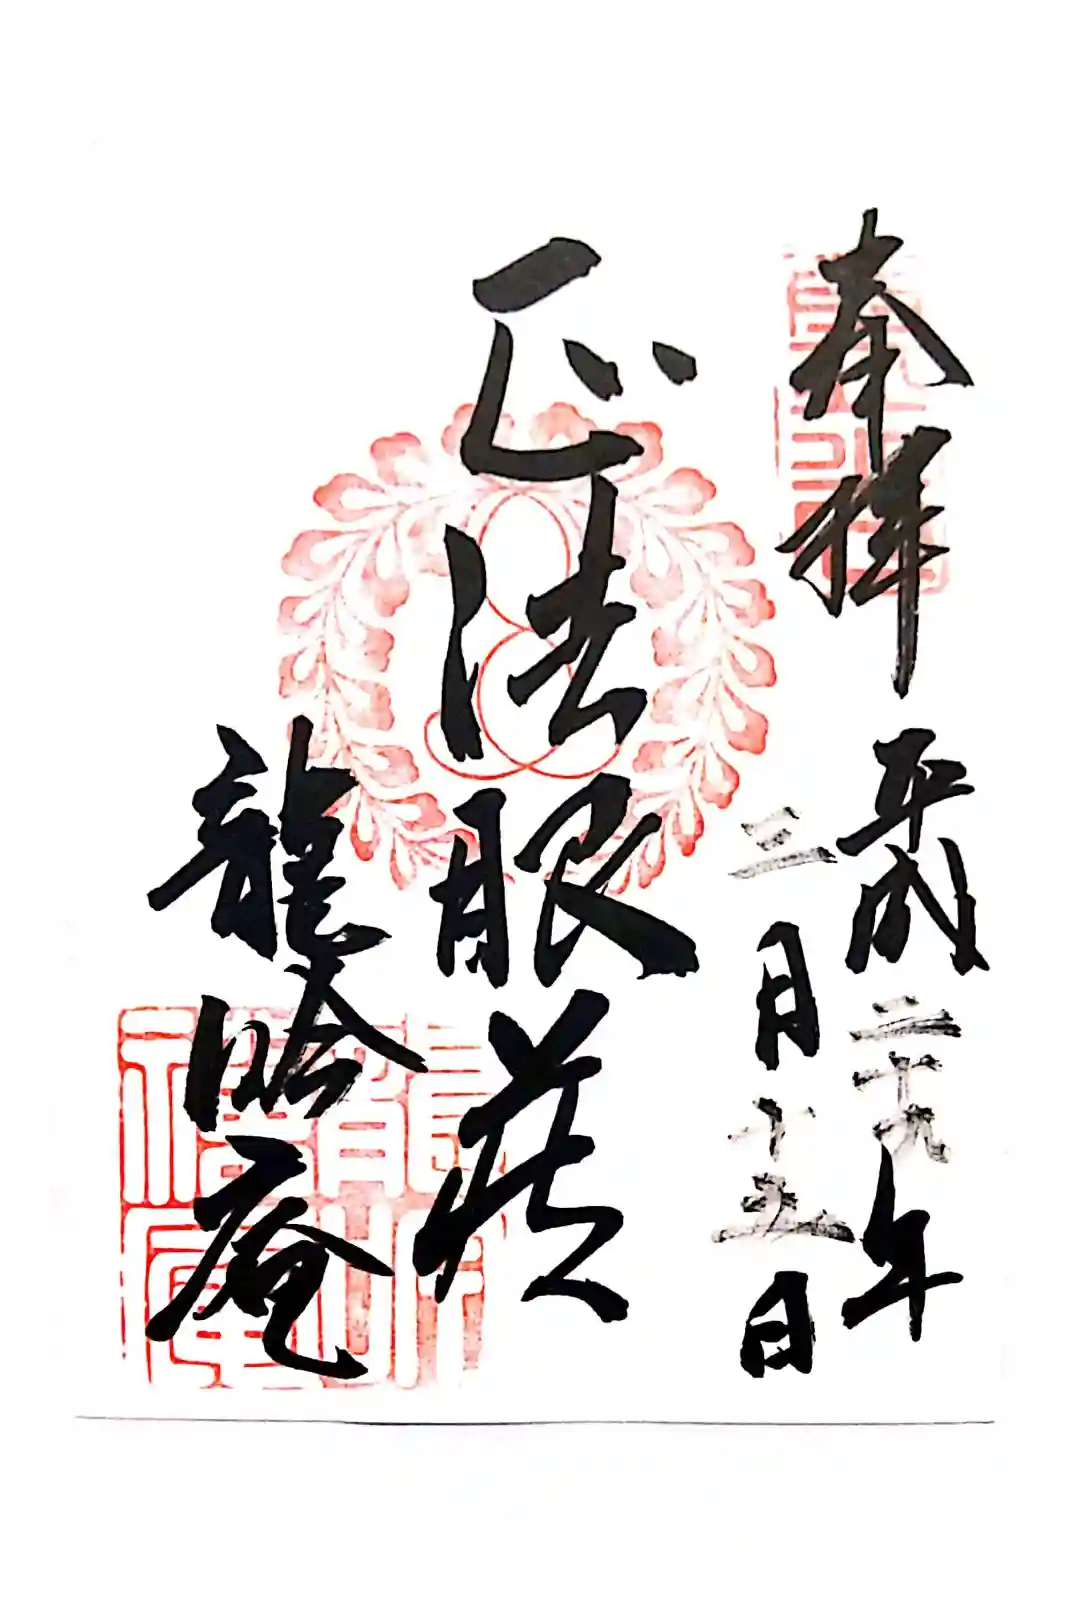 奉拝
平成二十九年
三月十五日
正法眼蔵
龍吟庵